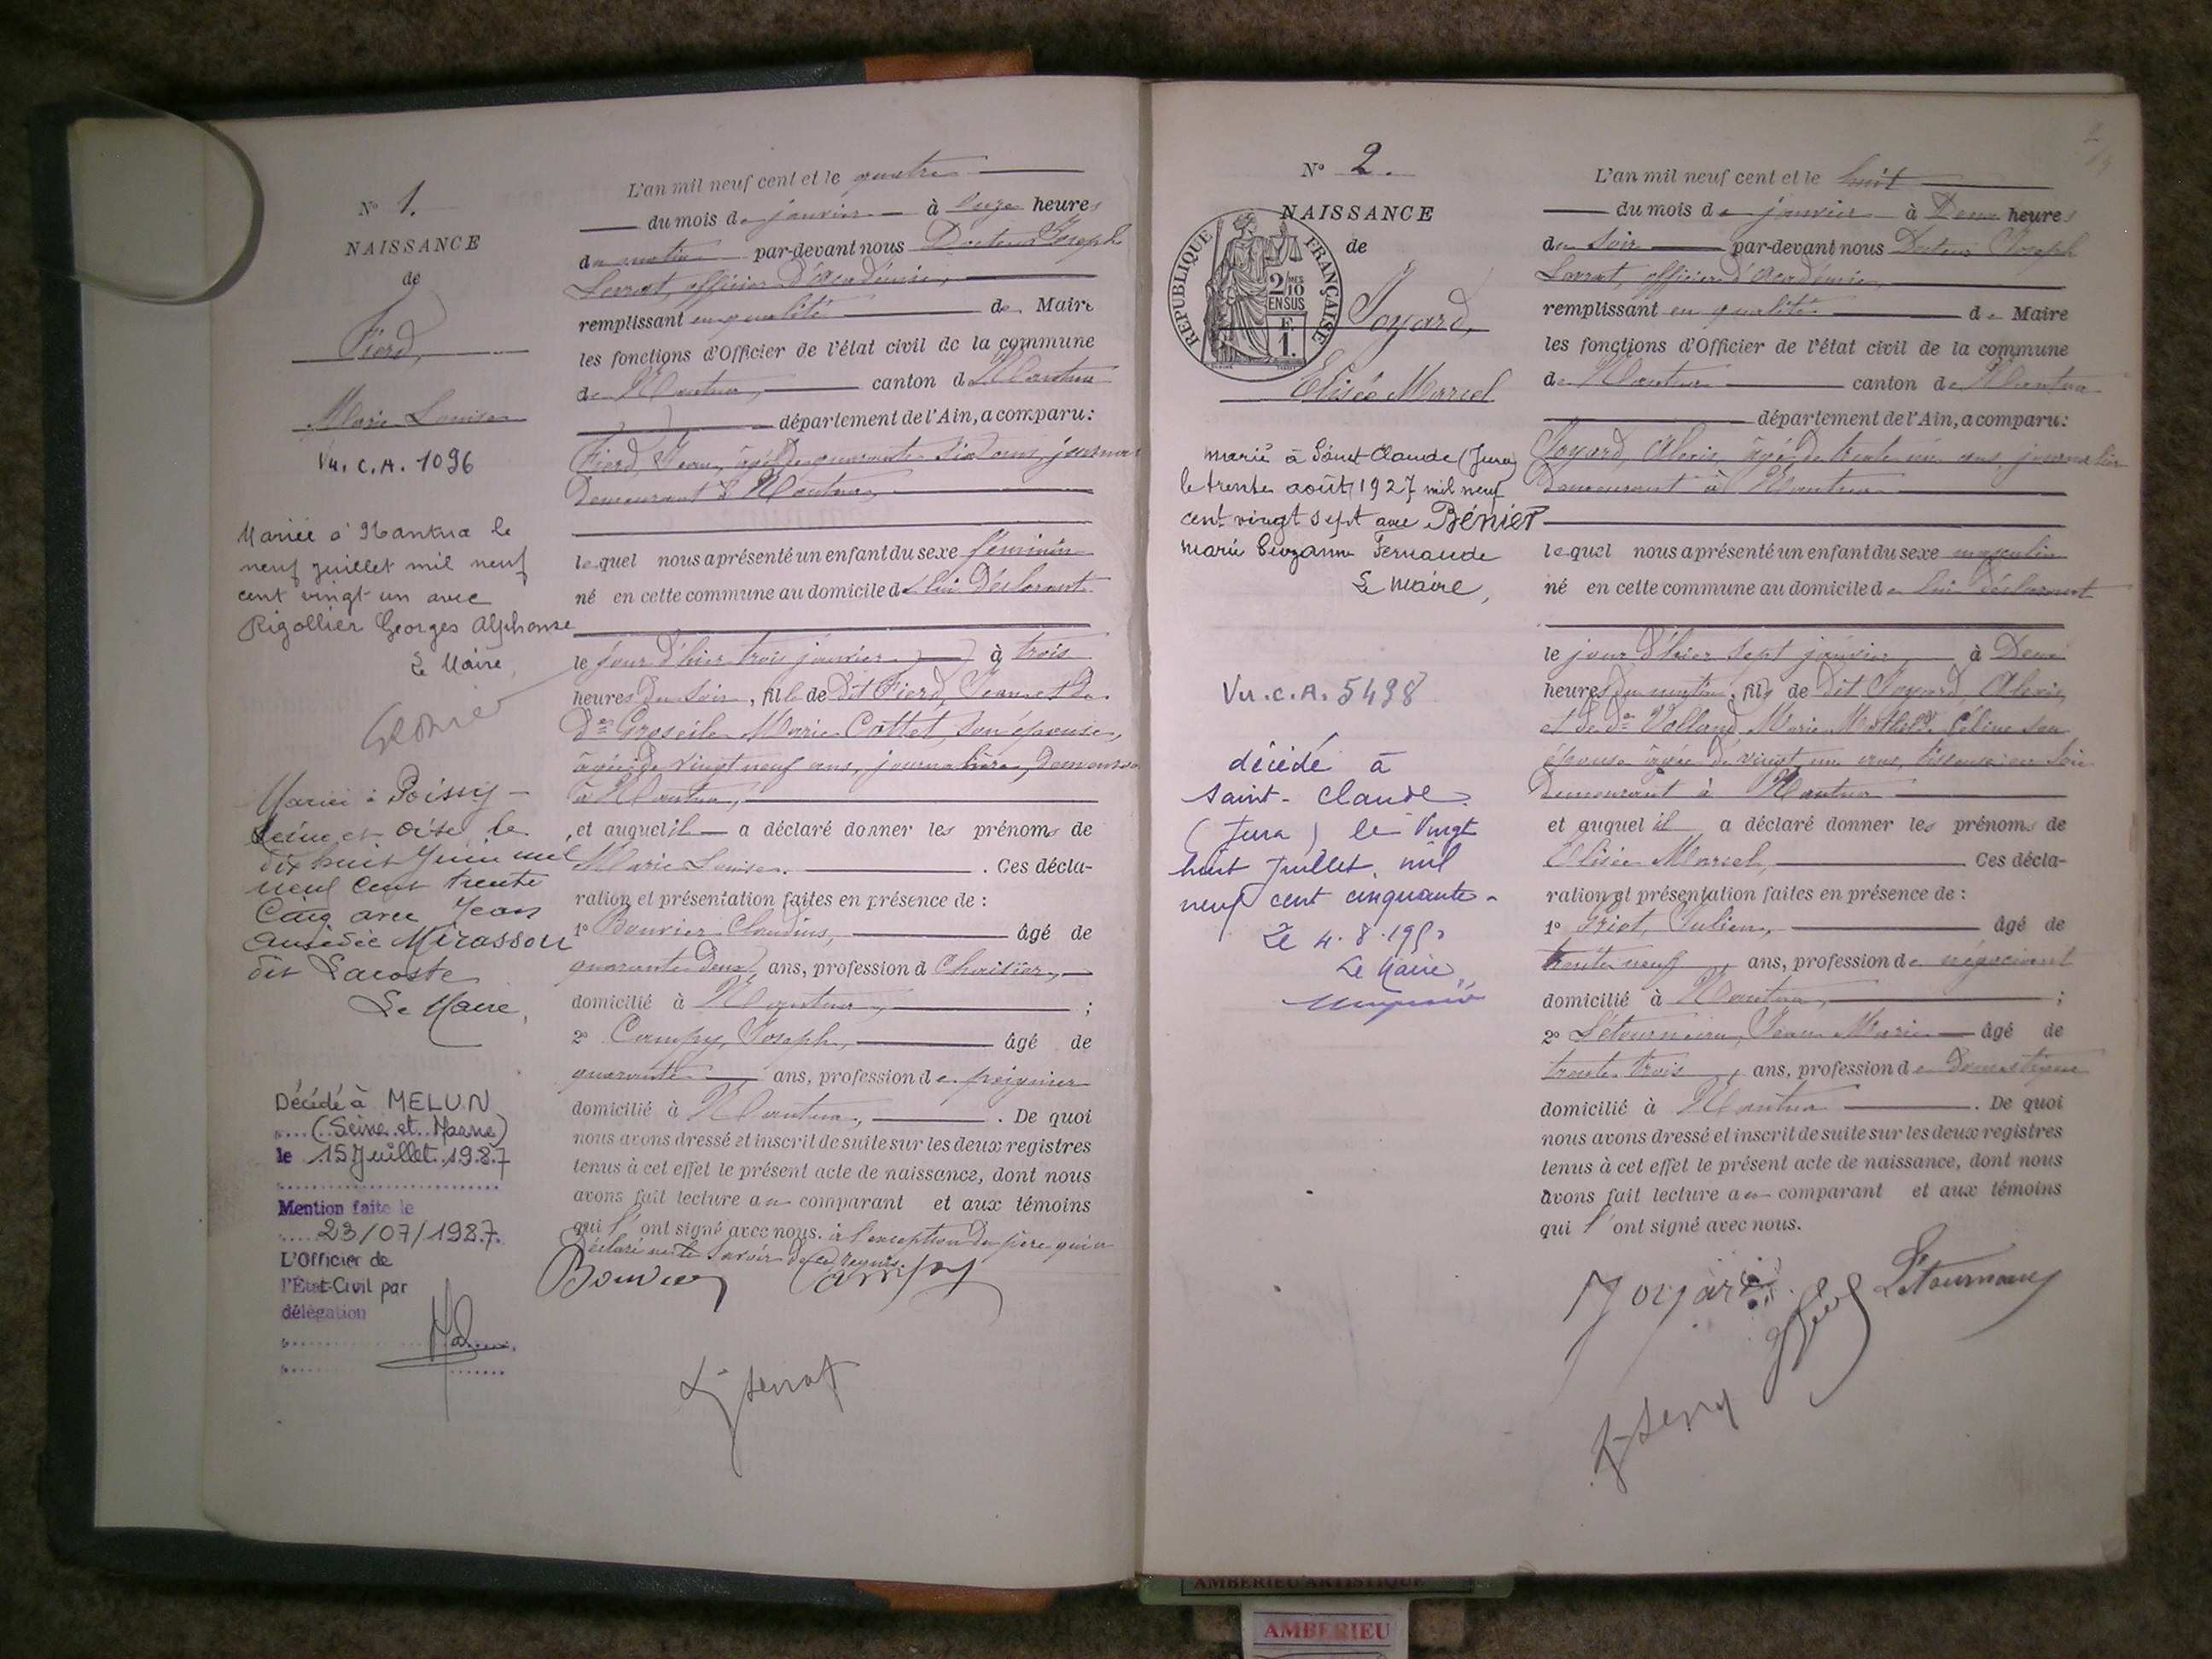 N° 1.
NAISSANCE
de
Fierd,
Marie Louise
Vu. C.A. 1096
Mariée à Nantua le
neuf juillet mil neuf
cent vingt-un avec
Rigollier Georges Alphonse
Le Maire,
Mariée à Poissy -
Seine et Oise, le
dix huit Juin mil
neuf cent trente
cinq avec Jean
Amédée Mirasson
dit Lacoste
Le Maire,
Décédé à MELUN
(Seine et Marne)
le 15 Juillet 1987
Mention faite le
23/07/1987.
L'Officier de
l'Etat-Civil par
délégation
L'an mil neuf cent et le quatre
du mois de janvier à onze heures
du matin par-devant nous Docteur Joseph
Serrat, officier d'Académie,
remplissant en qualité de Maire
les fonctions d'Officier de l'état civil de la commune
de Nantua, canton de Nantua
département de l'Ain, a comparu:
Fierd, Jean, âgé de quarante ans,
demeurant à Nantua,
lequel nous a présenté un enfant du sexe féminin
né en cette commune au domicile de lui déclarant
le jour d'hier trois janvier à trois
heures du soir, fille de dit Fierd, Jean et de
De Groseile Marie Cottet, son épouse,
âgée de vingt neuf ans, journalière, demeurant
à Nantua,
et auquel il a déclaré donner les prénoms de
Marie Louise. Ces décla-
ration et présentation faites en présence de :
1° Bouvier Claudius, âgé de
quarante deux ans, profession de Chaisier,
domicilié à Nantua, ;
2° Campy, Joseph, âgé de
quarante ans, profession de peignier
domicilié à Nantua, . De quoi
nous avons dressé et inscrit de suite sur les deux registres
tenus à cet effet le présent acte de naissance, dont nous
avons fait lecture au comparant et aux témoins
qui l'ont signé avec nous. à l'exception du père qui a
déclaré ne le savoir de ce requis.
Bouvier Campy
J Serrat
N° 2.
NAISSANCE
de
RÉPUBLIQUE FRANÇAISE
2/10 MES
EN SUS
F.
1.
Joyard,
Elisée Marcel
marié à Saint Claude (Jura)
le trente août 1927 mil neuf
cent vingt sept avec Bénier
Marie Suzanne Fernande
Le Maire,
Vu. C.A. 5498
décédé à
Saint-Claude
(Jura) le Vingt
huit Juillet mil
neuf cent cinquante-
Le Maire,
L'an mil neuf cent et le huit
du mois de janvier à Deux heures
du soir par-devant nous Docteur Joseph
Serrat, officier d'Académie
remplissant en qualité de Maire
les fonctions d'Officier de l'état civil de la commune
de Nantua canton de Nantua
département de l'Ain, a comparu:
Joyard, Alexis, âgé de trente un ans, journalier
demeurant à Nantua
lequel nous a présenté un enfant du sexe masculin
né en cette commune au domicile de lui déclarant
le jour d'hier sept janvier à Deux
heures du matin, fils de dit Joyard, Alexis,
et de De Volland, Marie Mathilde Céline son
épouse âgée de vingt un ans, tisseuse en soie
demeurant à Nantua
et auquel il a déclaré donner les prénoms de
Elisée Marcel, Ces décla-
ration et présentation faites en présence de :
1° Griot, Julien, âgé de
trente neuf, ans, profession de négociant
domicilié à Nantua, ;
2° Létourneau, Jean Marie âgé de
trente trois, ans, profession de Domestique
domicilié à Nantua . De quoi
nous avons dressé et inscrit de suite sur les deux registres
tenus à cet effet le présent acte de naissance, dont nous
avons fait lecture au comparant et aux témoins
qui l'ont signé avec nous.
Joyard Létourneau
AMBERIEU ARTISTIQUE
AMBERIEU